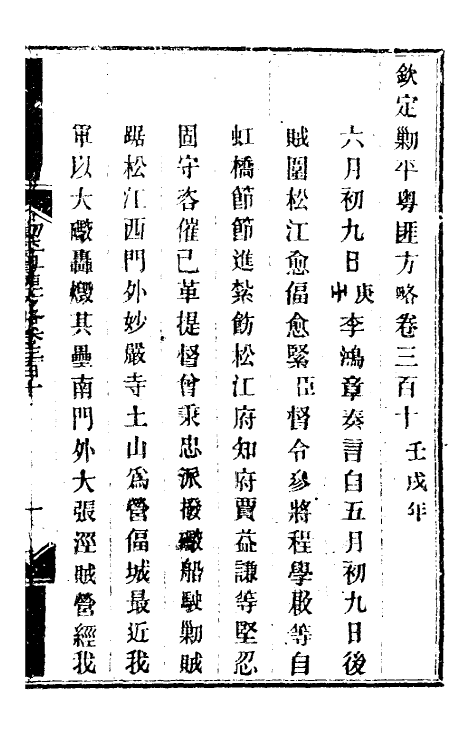 欽定剿平粵匪方略卷三百十 壬戌年
六月初九日庚申李鴻章奏言自五月初九日後
賊圍松江愈偪愈緊臣督令參將程學啟等自
虹橋節節進紮飭松江府知府賈益謙等堅忍
固守咨催已革提督曾秉忠派撥礮船駛剿賊
踞松江西門外妙嚴寺土山為營偪城最近我
軍以大礮轟燬其壘南門外大張涇賊營經我